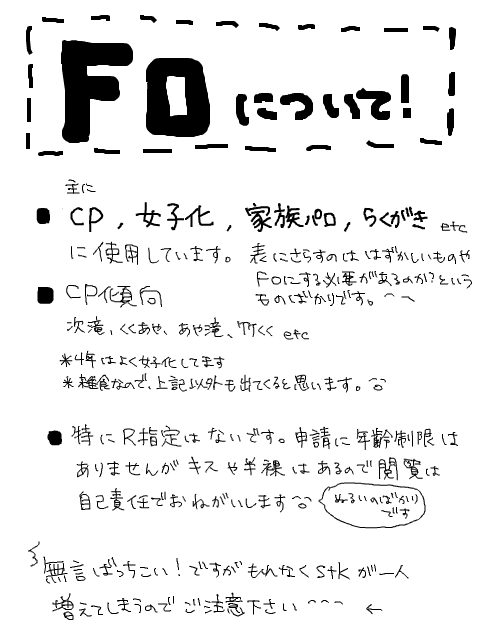 FOについて!
主に
CP,女子化,家族パロ,らくがき etc
に使用しています。表にさらすのははずかしいものや
FOにする必要があるのか?という
ものばかりです。
CP傾向
次滝、くくあや、あや滝、竹くく etc
*4年はよく女子化してます
*雑食なので、上記以外も出てくると思います。
特にR指定はないです。申請に年齢制限は
ありませんがキスや半裸はあるので閲覧は
自己責任でおねがいします
ぬるいのばかり
です
無言ばっちこい!ですがもれなくstkが一人
増えてしまうのでご注意下さい ←